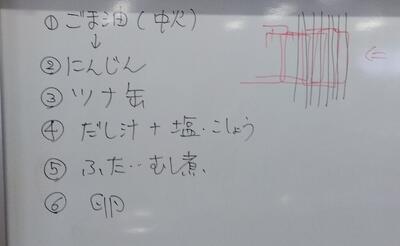 ①ごま油(中火)
↓
②にんじん
③ツナ缶
④だし汁+塩・こしょう
⑤ふた‥むし煮、
⑥卵